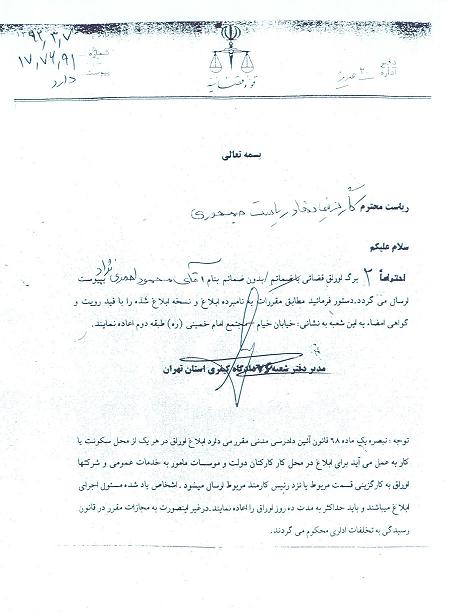 ۱۳۹۲,۳,۷
شماره ۱۷,۷۶,۹۱
پیوست دارد
قوه قضائیه
بسمه تعالی
ریاست محترم کارگزینی نهاد ریاست جمهوری
سلام علیکم
احتراماً ۲ برگ اوراق قضائی با ضمائم/بدون ضمائم بنام آقای محمود احمدی نژاد بپیوست
ارسال می گردد.دستور فرمائید مطابق مقررات به نامبرده ابلاغ و نسخه ابلاغ شده را با قید رویت و
گواهی امضاء به این شعبه به نشانی: خیابان خیام – مجتمع امام خمینی (ره) طبقه دوم اعاده نمایند.
مدیر دفتر شعبه ۷۶ دادگاه کیفری استان تهران
توجه : تبصره یک ماده ۶۸ قانون آئین دادرسی مدنی مقرر می دارد ابلاغ اوراق در هر یک از محل سکونت یا
کار به عمل می آید برای ابلاغ در محل کار کارکنان دولت و موسسات مامور به خدمات عمومی و شرکتها
اوراق به کارگزینی قسمت مربوط یا نزد رئیس کارمند مربوط ارسال میشود . اشخاص یاد شده مسئول اجرای
ابلاغ میباشند و باید حداکثر به مدت ده روز اوراق را اعاده نمایند.درغیر اینصورت به مجازات مقرر در قانون
رسیدگی به تخلفات اداری محکوم می گردند.